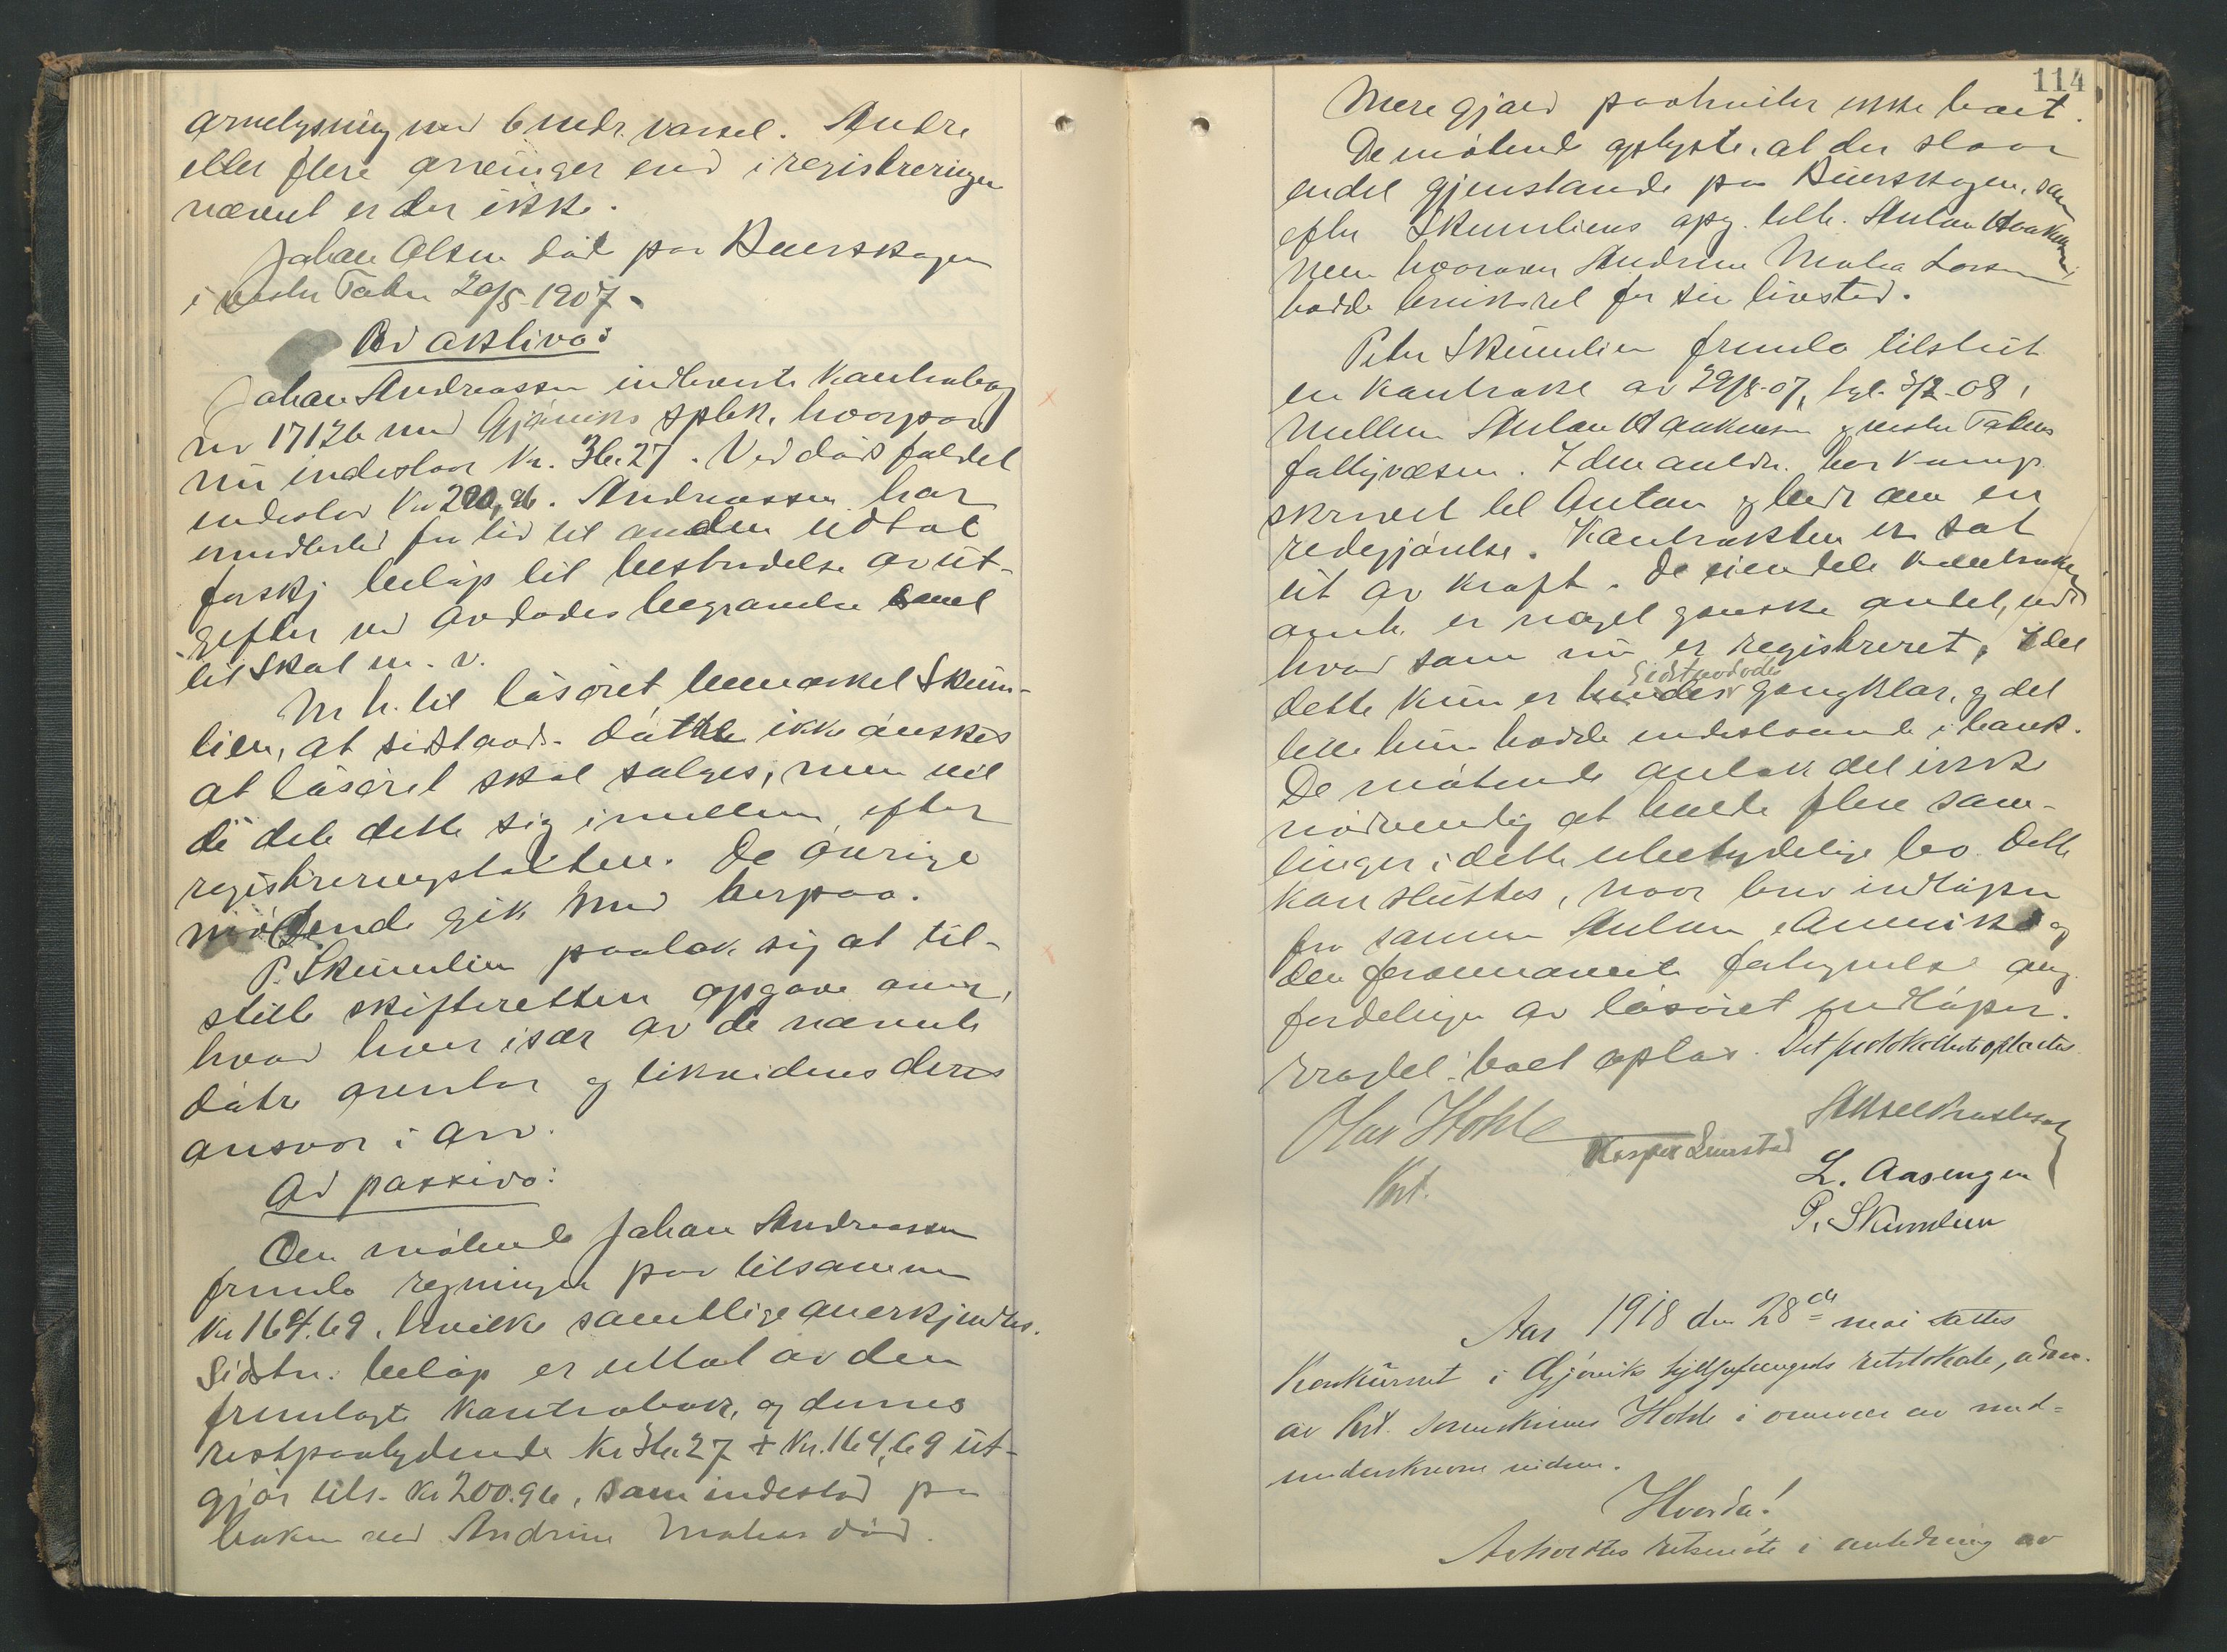 arvelysning med 6 mdr. varsel. Andre
eller flere arvinger end i registreringen
nævnt er der ikke.
Johan Olsen död paa Buerskogen
i vestre Toten 20/5-1907.
Ad aktiva:
Johan Andreassen indleverte kontrabog
nr 17126 med Gjöviks spbk. hvorpaa
nu indestaar kr. 36.27. Ved dödsfaldet
indestod kr 200,96. Andreassen har
imidlertid fra tid til anden uttat
forskj belöp til bestridelse av ut-
gifter ved avdödes begravelse samt
til skat m. v.
M. h. til lösöret bemerket Skum-
lien, at sidstavd. döttre ikke önskes
at lösöret skal sælges, men vil
de dele dette sig imellem efter
registreringstaksten. De övrige
mötende gik med herpaa.
P. Skumlien paatok sig at til-
stille skifteretten opgave over,
hvad hver især av de nævnte
dötre overtar og likvideres deres
ansvar i arv.
Ad passiva:
Den mötende Johan Andreassen
fremla regninger paa tilsammen
kr 164.69, hvilke samtlige anerkjendtes.
Sidstn. belöp er uttat av den
fremlagte kontrabok, og dennes
restpaalydende kr 36.27 + kr. 164,69 ut-
gjör tils. kr 200.96, som indestod paa
boken ved Andrine Matheas död.
114
Mere gjæld paahviler ikke boet.
De mötende oplyste, at der staar
endel gjenstande paa Buerskogen, som
efter Skumliens opg. tilh. Anton Haakensen
men hvorover Andrine Mathea Larsen
hadde bruksret for sin livstid.
Peter Skumlien fremla tilslut
en kontrakt av 29/8-07, tgl. 3/2-08,
mellem Anton Haakensen og vestre Totens
fattigvæsen. I den anledn. har kump.
skrevet til Anton og bedt om en
redegjörelse. Kontrakten er sat
ut av kraft. De eiendele kontrakten
omh. er noget ganske andet, end
hvad som nu er registreret, idet
dette kun er sidstavdödes gangklær, og det
lille hun hadde indestaaende i bank.
De mötende antok det ikke
nödvendig at holde flere sam-
linger i dette ubetydelige bo. Dette
kan sluttes, naar brev indlöper
fra sönnen Anton i Amerika og
den forannævnte fortegnelse ang.
fordelingen av lösöret indlöper.
Bragtes i boet oplæst. Det protokollerte oplæstes.
Olav Hohle
Kst.
Kasper Linnstad
L. Aasengen
P. Skumlien
Aar 1918 den 28de mai sattes
Konkursret i Gjöviks hjelpefængsels retslokale, adm.
av kst. sorenskriver Hohle i overvær av med-
underskrevne vidner.
Hvorda!
Avholdtes retsmöte i anledning av